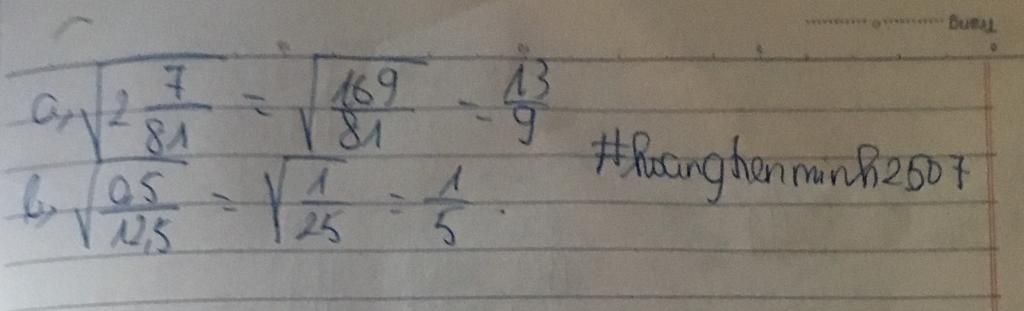 Trang ..............
a, √(2 7/81) = √(169/81) = 13/9
b, √(0,5/12,5) = √(1/25) = 1/5.
#hoanghenminh2507